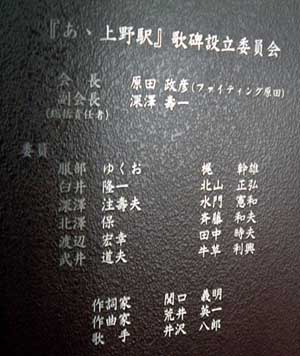 『あゝ上野駅』歌碑設立委員会
会長 原田 政彦(ファイティング原田)
副会長 深澤 壽一
(総括責任者)
委員
服部 ゆくお 梶 幹雄
臼井 隆一 北山 正弘
深澤 注壽夫 水門 憲和
北澤 保 斉藤 和夫
渡辺 宏幸 田中 時夫
武井 道夫 牛草 利興
作詞家 関口 義明
作曲家 荒井 英一
歌手 井沢 八郎